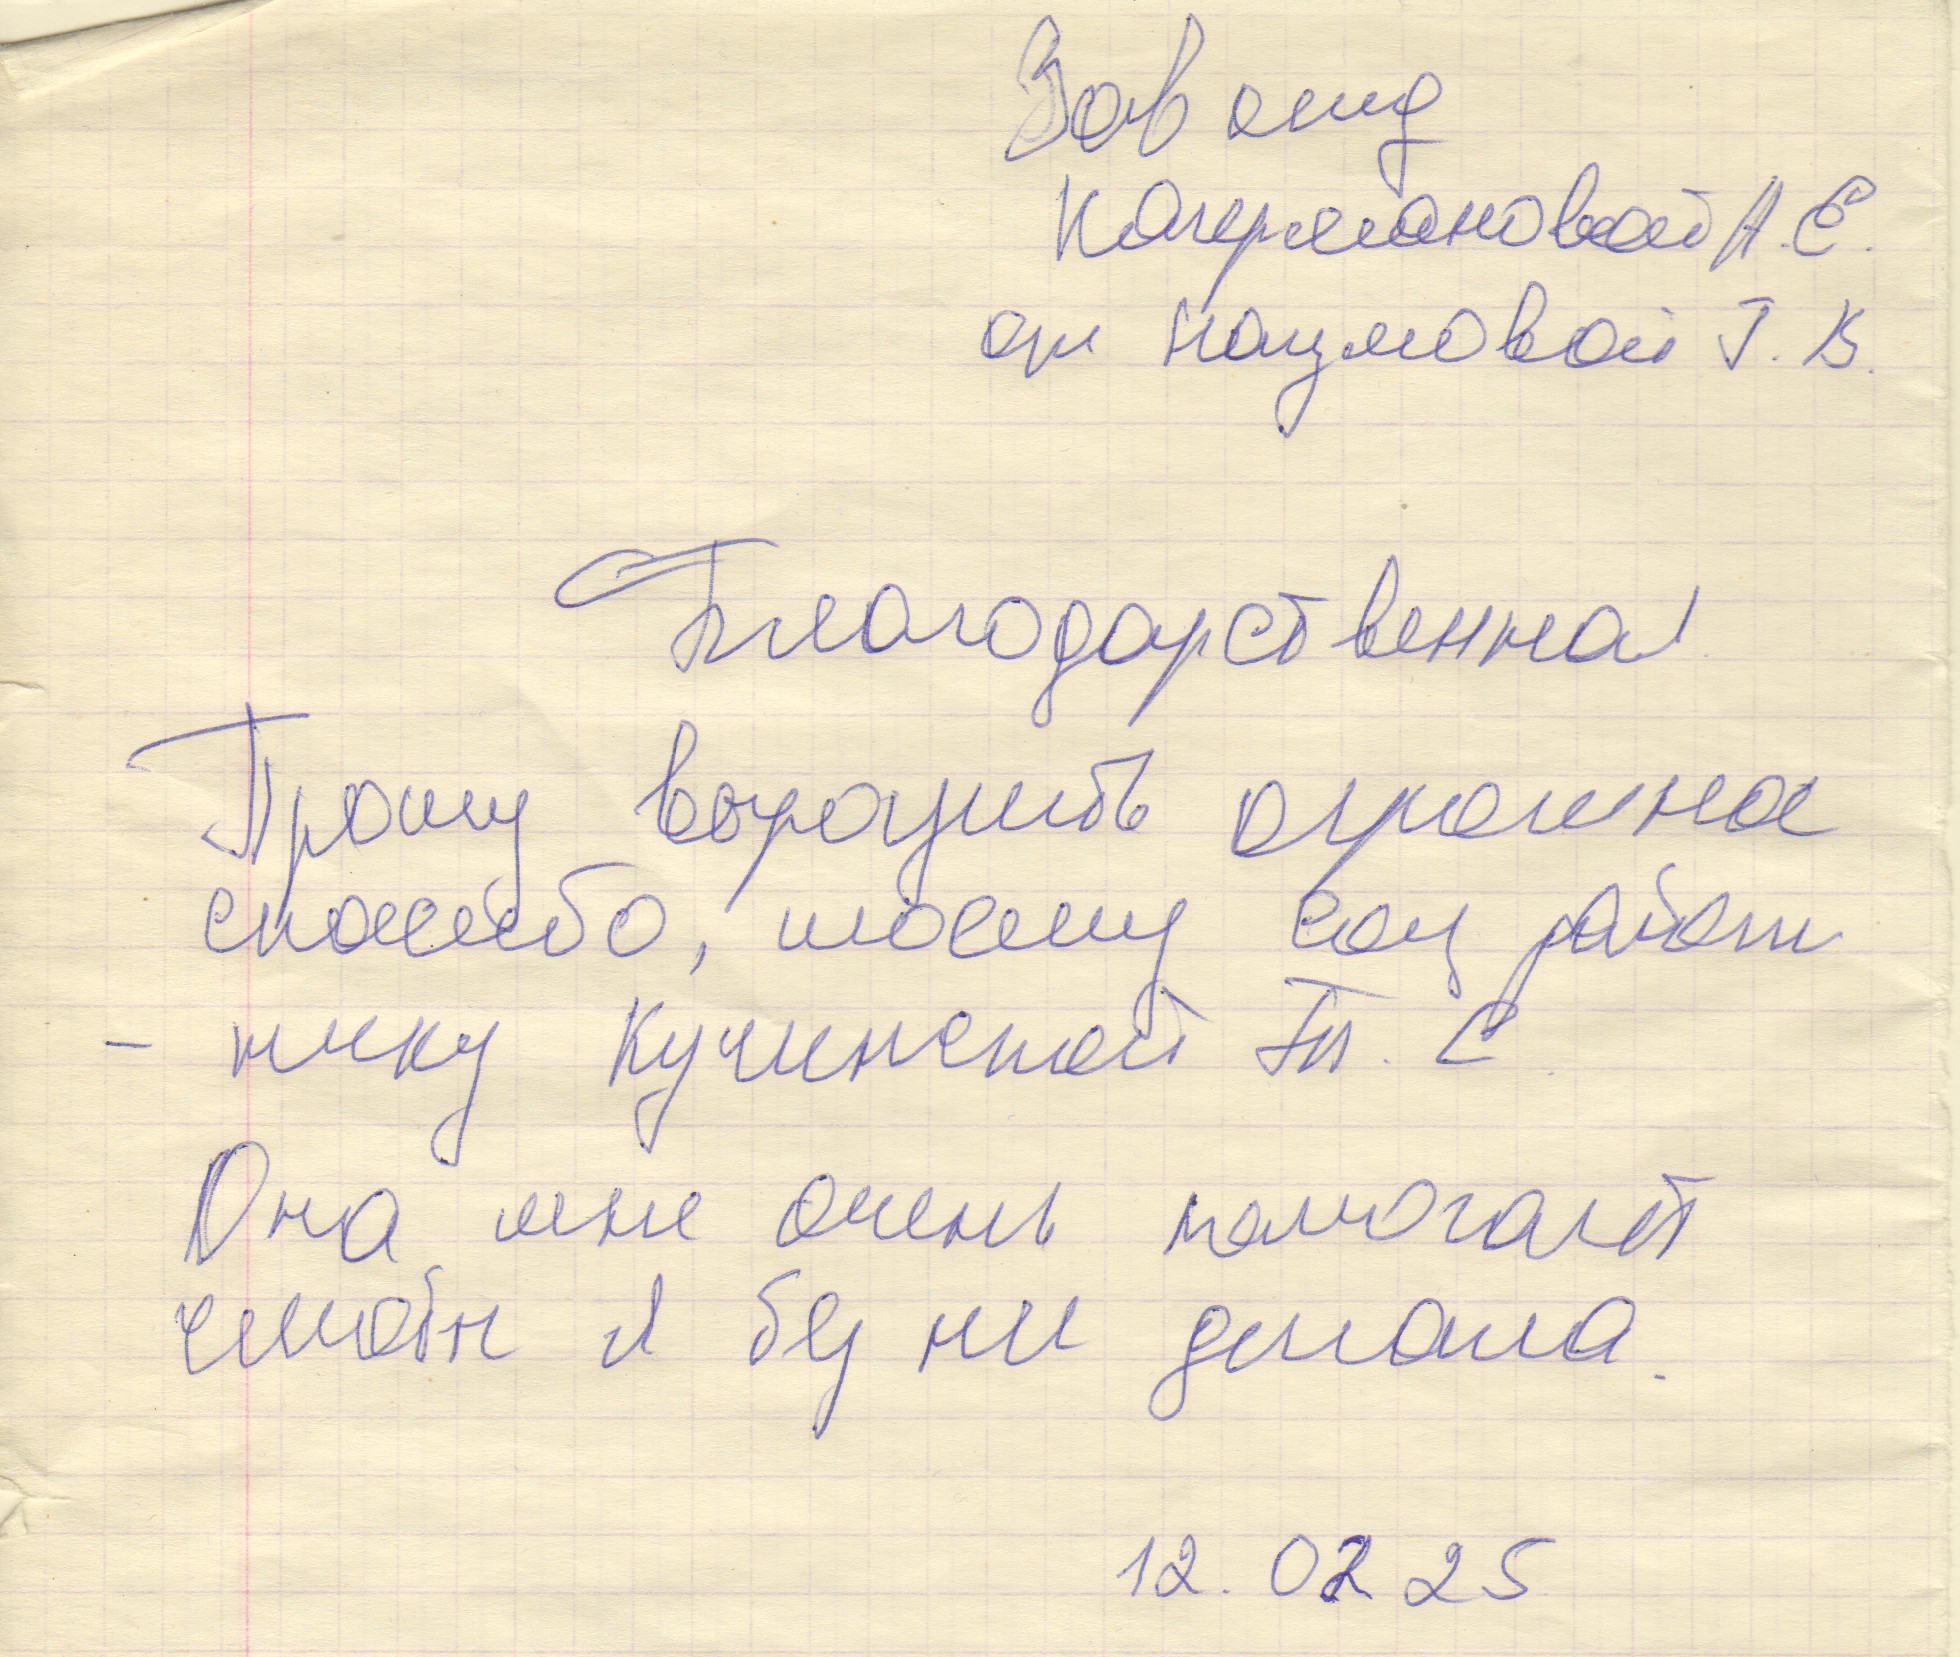 Зав отд
Кагермановой А.Е.
от Наумовой Г.В.
Благодарственная
Прошу выразить огромное
спасибо, моему соц работ
- нику Кучинской Т.С.
Она мне очень помогает
чтобы я бы ни делала.
12.02 25